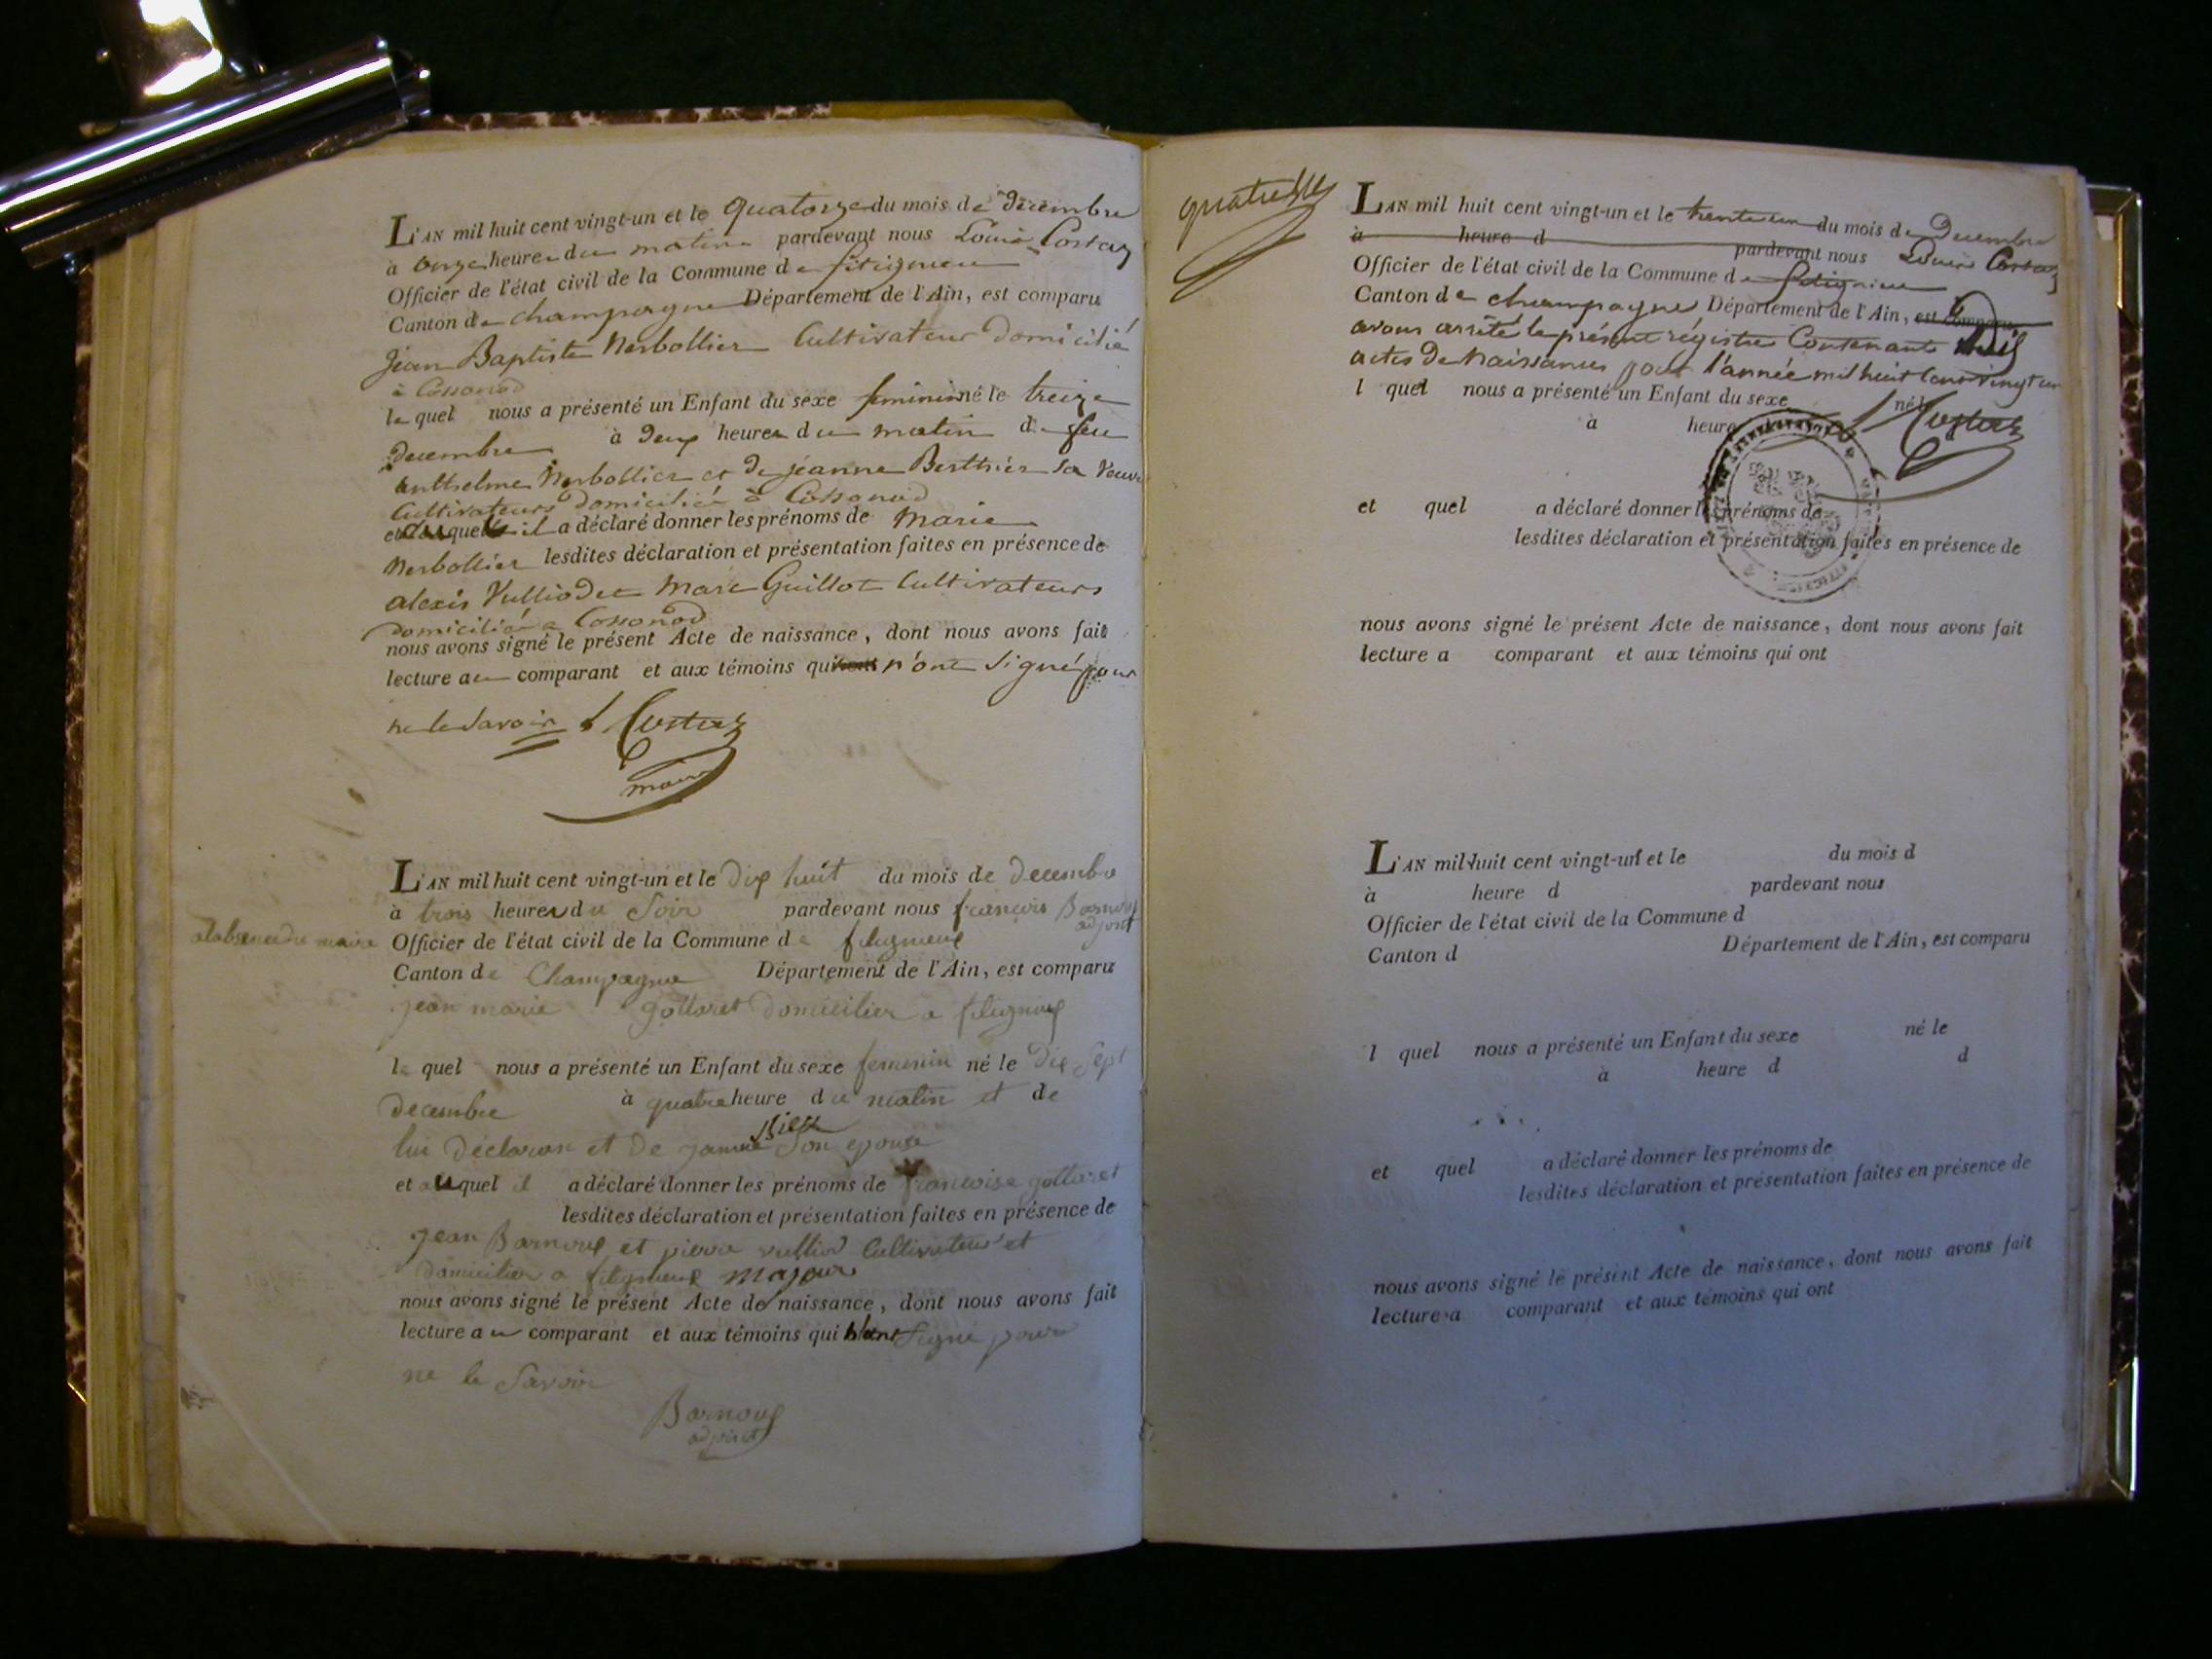 L'AN mil huit cent vingt-un et le quatorze du mois de decembre
à onze heures du matin pardevant nous Louis Costaz
Officier de l'état civil de la Commune de fitignieu
Canton de champagne Département de l'Ain, est comparu
Jean Baptiste Nerbollier Cultivateur Domicilié
à Cossonod
le quel nous a présenté un Enfant du sexe feminin né le treize
decembre à deux heures du matin de feu
anthelme Nerbollier et de jeanne Berthier sa Veuve
Cultivateurs domiciliés à Cossonod
et auquel il a déclaré donner les prénoms de Marie
Nerbollier lesdites déclaration et présentation faites en présence de
alexis Vulliod et Marc Guillot Cultivateurs
domiciliés a Cossonod
nous avons signé le présent Acte de naissance, dont nous avons fait
lecture au comparant et aux témoins qui n'ont signé pour
ne le savoir L Costaz
maire
L'AN mil huit cent vingt-un et le dix huit du mois de decembre
à trois heures du soir pardevant nous françois Barnoux
adjoint
alabsence du maire Officier de l'état civil de la Commune de fitignieux
Canton de Champagne Département de l'Ain, est comparu
jean marie gottaret domicilier a fitignieux
le quel nous a présenté un Enfant du sexe feminin né le dix sept
decembre à quatre heure du matin et de
lui déclaran et de son epouse
et auquel il a déclaré donner les prénoms de francoise gottaret
lesdites déclaration et présentation faites en présence de
jean Barnoux et pierre vulliod Cultivateur et
domicilier a fitignieux majour
nous avons signé le présent Acte de naissance, dont nous avons fait
lecture au comparant et aux témoins qui signé pour
ne le savoir
Barnoux
adjoint
L'AN mil huit cent vingt-un et le trente un du mois de Decembre
à heure d pardevant nous Louis Costaz
Officier de l'état civil de la Commune de fitignieu
Canton de champagne Département de l'Ain, est comparu
avons arrêté le présent régistre Contenant
actes de Naissances pour l'année mil huit Cent vingt un
l quel nous a présenté un Enfant du sexe né le
à heure L Costaz
et quel a déclaré donner les prénoms de
lesdites déclaration et présentation faites en présence de
nous avons signé le présent Acte de naissance, dont nous avons fait
lecture a comparant et aux témoins qui ont
L'AN mil huit cent vingt-un et le du mois d
à heure d pardevant nous
Officier de l'état civil de la Commune d
Canton d Département de l'Ain, est comparu
l quel nous a présenté un Enfant du sexe né le
à heure d d
et quel a déclaré donner les prénoms de
lesdites déclaration et présentation faites en présence de
nous avons signé le présent Acte de naissance, dont nous avons fait
lecture a comparant et aux témoins qui ont